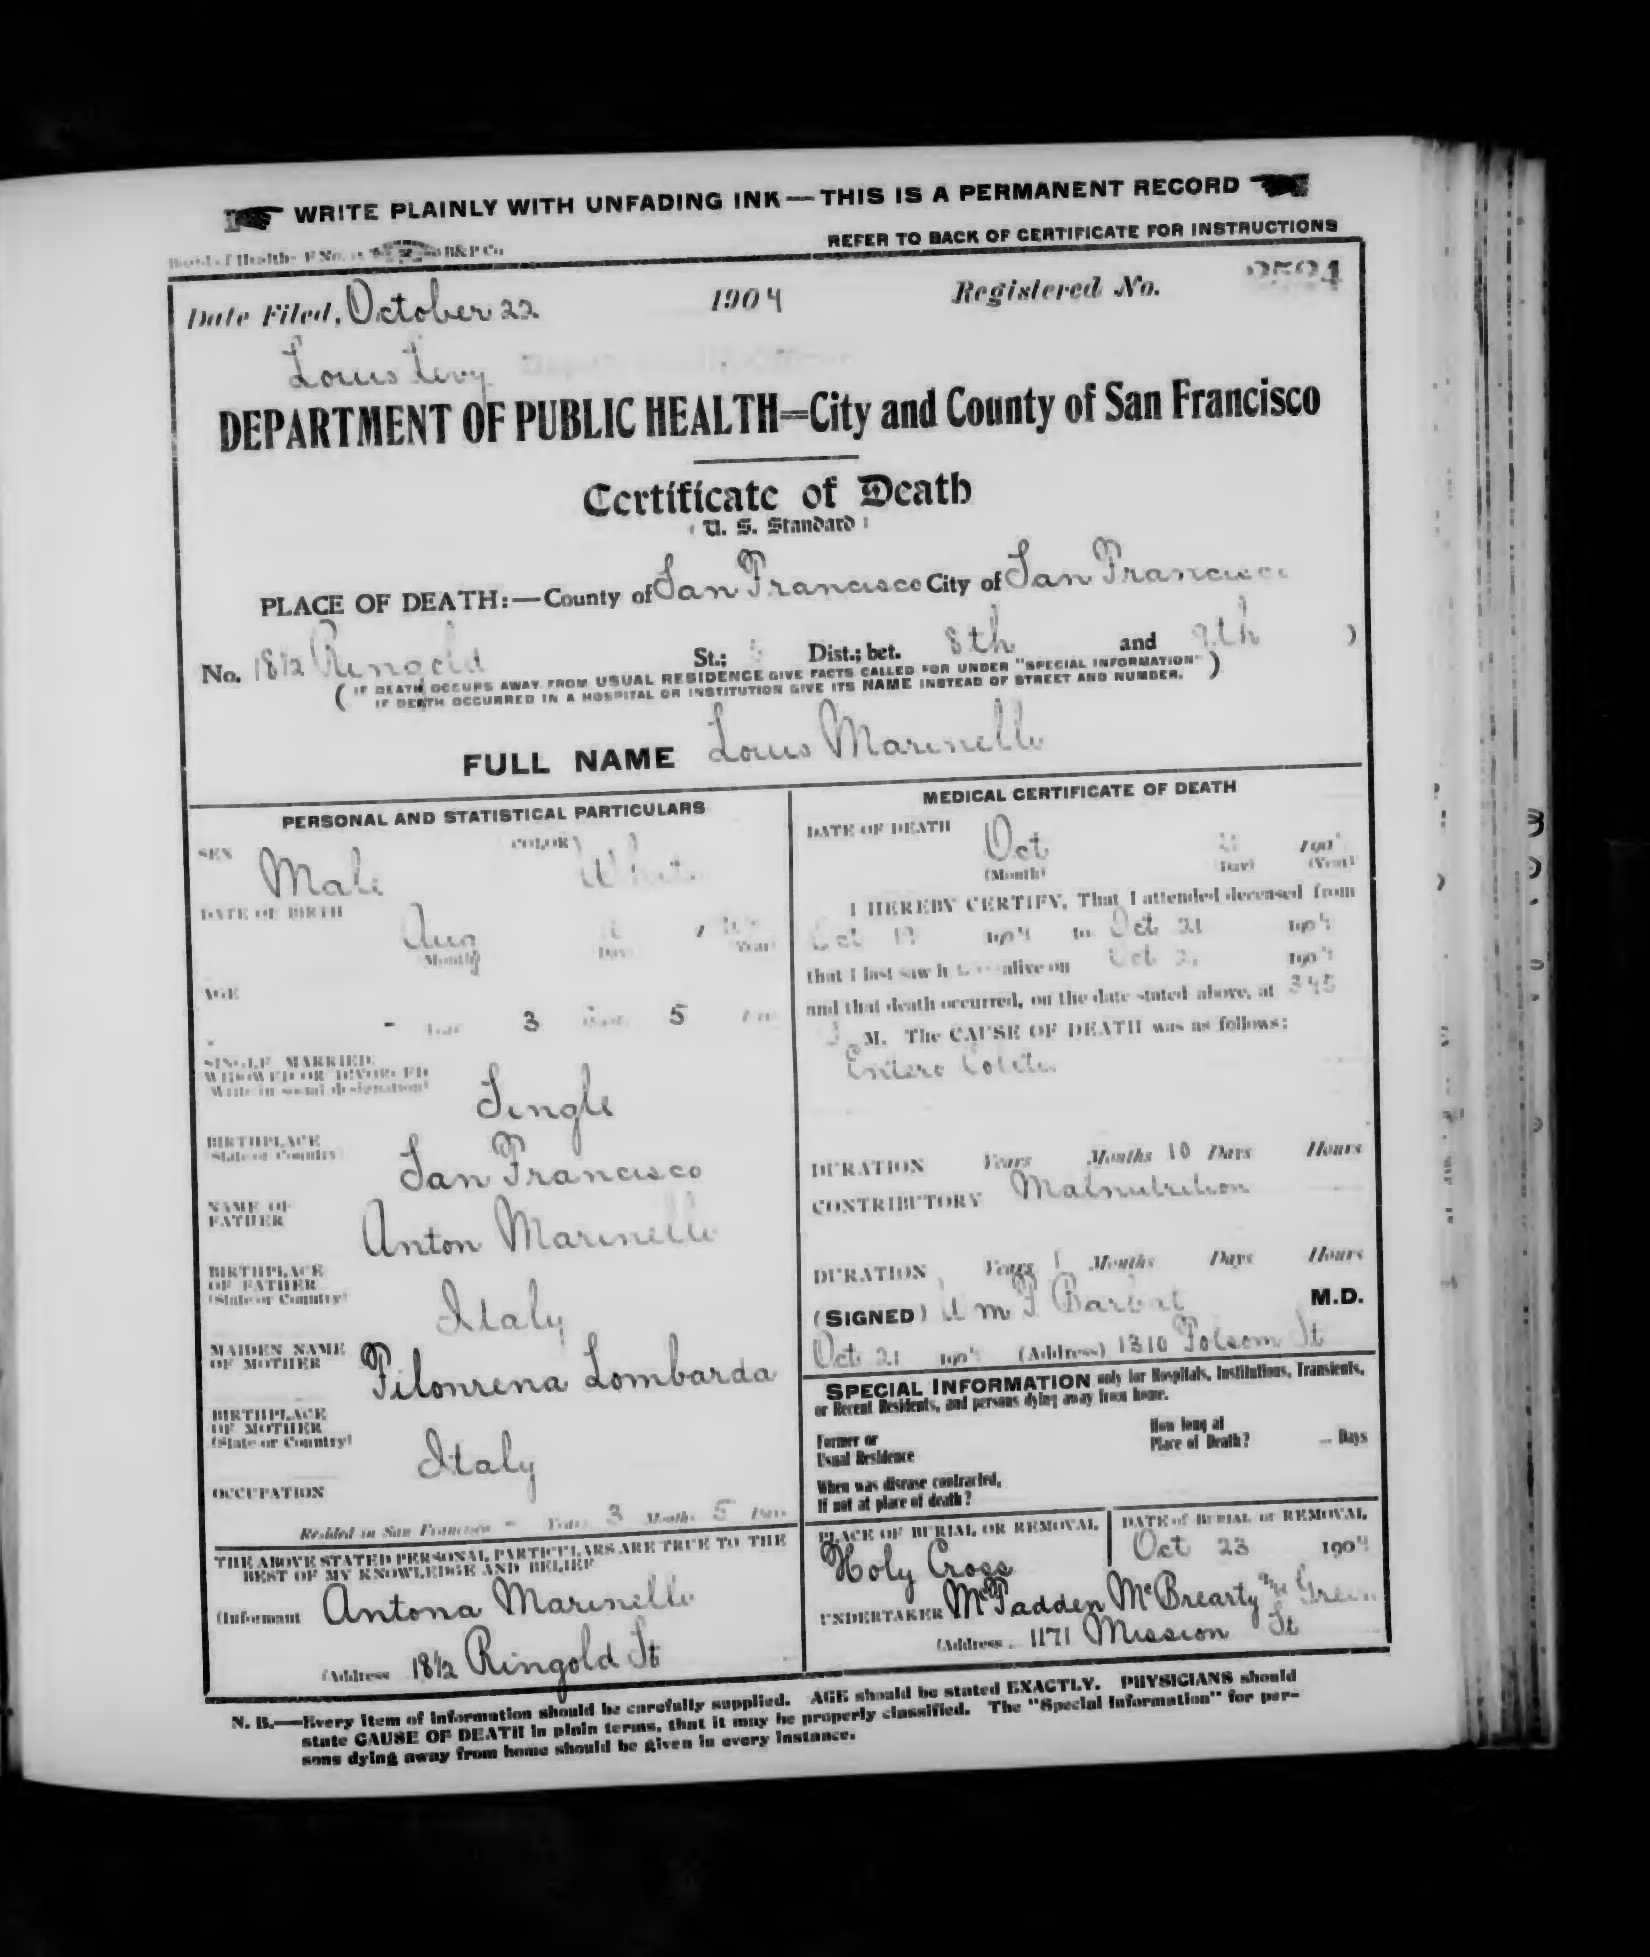 WRITE PLAINLY WITH UNFADING INK—THIS IS A PERMANENT RECORD
Board of Health B&P Co.
REFER TO BACK OF CERTIFICATE FOR INSTRUCTIONS
Date Filed, October 22 1904 Registered No.
Louis Levy
DEPARTMENT OF PUBLIC HEALTH=City and County of San Francisco
Certificate of Death
(U. S. Standard)
PLACE OF DEATH:—County of San Francisco City of San Francisco
No. 18½ Ringold St.; Dist.; bet. 8th and 9th )
( IF DEATH OCCURS AWAY FROM USUAL RESIDENCE GIVE FACTS CALLED FOR UNDER "SPECIAL INFORMATION" )
IF DEATH OCCURRED IN A HOSPITAL OR INSTITUTION GIVE ITS NAME INSTEAD OF STREET AND NUMBER.
FULL NAME Louis Marinello
PERSONAL AND STATISTICAL PARTICULARS
SEX Male COLOR White
DATE OF BIRTH Aug
(Month) (Day) (Year)
AGE
- Years 3 Months 5 Days
SINGLE, MARRIED,
WIDOWED OR DIVORCED
(Write in social designation) Single
BIRTHPLACE
(State or Country) San Francisco
NAME OF
FATHER Anton Marinello
BIRTHPLACE
OF FATHER
(State or Country) Italy
MAIDEN NAME
OF MOTHER Filonrena Lombarda
BIRTHPLACE
OF MOTHER
(State or Country) Italy
OCCUPATION
Resided in San Francisco - Years 3 Months 5 Days
THE ABOVE STATED PERSONAL PARTICULARS ARE TRUE TO THE
BEST OF MY KNOWLEDGE AND BELIEF
(Informant Antona Marinello
(Address 18½ Ringold St
MEDICAL CERTIFICATE OF DEATH
DATE OF DEATH Oct 21 190
(Month) (Day) (Year)
I HEREBY CERTIFY, That I attended deceased from
Oct 1904 to Oct 21 1904
that I last saw h alive on Oct 1904
and that death occurred, on the date stated above, at 345
M. The CAUSE OF DEATH was as follows:
Entero Colitis
DURATION Years Months 10 Days Hours
CONTRIBUTORY Malnutrition
DURATION Years 1 Months Days Hours
(SIGNED) Wm F Barbat M.D.
Oct 21 1904 (Address) 1310 Folsom St
SPECIAL INFORMATION only for Hospitals, Institutions, Transients,
or Recent Residents, and persons dying away from home.
Former or
Usual Residence
How long at
Place of Death? Days
When was disease contracted,
If not at place of death?
PLACE OF BURIAL OR REMOVAL
Holy Cross
DATE of BURIAL or REMOVAL
Oct 23 1904
UNDERTAKER McFadden McBrearty and Green
(Address 1171 Mission St
N. B.—Every item of information should be carefully supplied. AGE should be stated EXACTLY. PHYSICIANS should
state CAUSE OF DEATH in plain terms, that it may be properly classified. The "Special Information" for per-
sons dying away from home should be given in every instance.